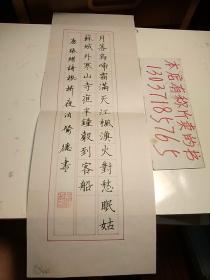 月落烏啼霜滿天江楓漁火對愁眠姑
蘇城外寒山寺夜半鍾聲到客船
唐張繼詩楓橋夜泊 德書
本店有的书
13037185765